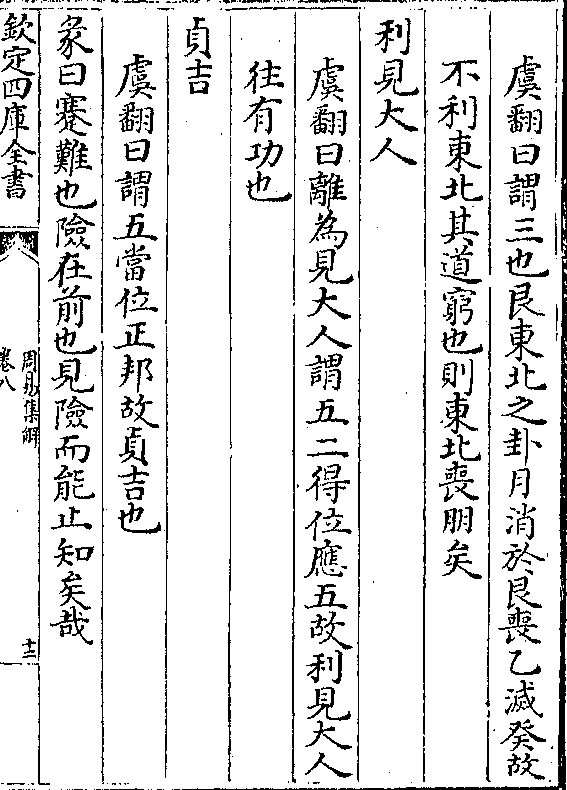 虞翻曰謂三也艮東北之卦月消於艮喪乙滅癸故
不利東北其道窮也則東北喪朋矣
利見大人
虞翻曰離為見大人謂五二得位應五故利見大人
往有功也
貞吉
虞翻曰謂五當位正邦故貞吉也
彖曰蹇難也險在前也見險而能止知矣哉
欽定四庫全書
周易集解
卷八
十二